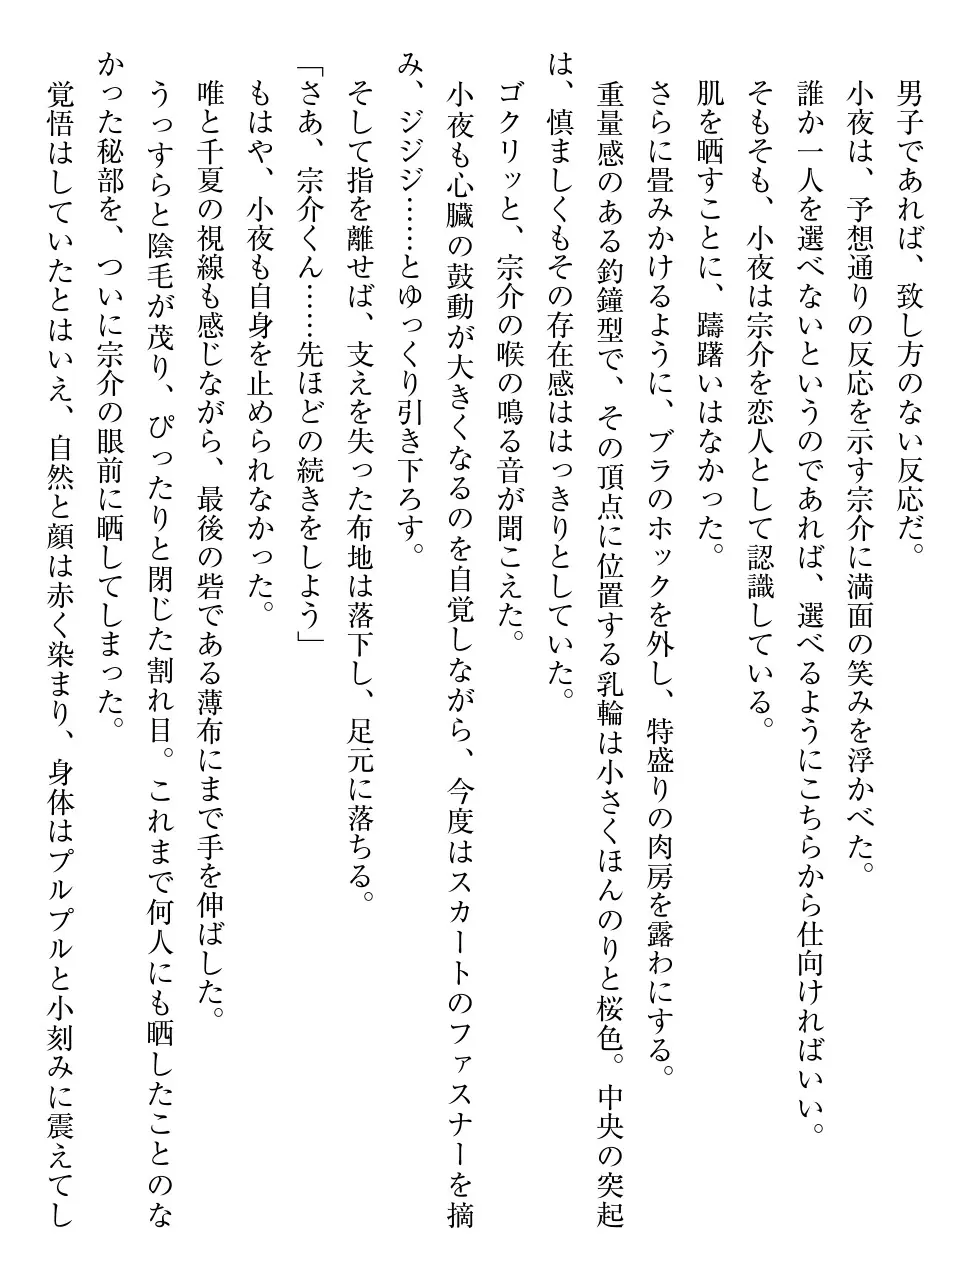 男子であれば、致し方のない反応だ。
小夜は、予想通りの反応を示す宗介に満面の笑みを浮かべた。
誰か一人を選べないというのであれば、選べるようにこちらから仕向ければいい。
そもそも、小夜は宗介を恋人として認識している。
肌を晒すことに、躊躇いはなかった。
さらに畳みかけるように、ブラのホックを外し、特盛りの肉房を露わにする。
重量感のある釣鐘型で、その頂点に位置する乳輪は小さくほんのりと桜色。中央の突起
は、慎ましくもその存在感ははっきりとしていた。
ゴクリッと、宗介の喉の鳴る音が聞こえた。
小夜も心臓の鼓動が大きくなるのを自覚しながら、今度はスカートのファスナーを摘
み、ジジジ……とゆっくり引き下ろす。
そして指を離せば、支えを失った布地は落下し、足元に落ちる。
「さあ、宗介くん……先ほどの続きをしよう」
もはや、小夜も自身を止められなかった。
唯と千夏の視線も感じながら、最後の砦である薄布にまで手を伸ばした。
うっすらと陰毛が茂り、ぴったりと閉じた割れ目。これまで何人にも晒したことのな
かった秘部を、ついに宗介の眼前に晒してしまった。
覚悟はしていたとはいえ、自然と顔は赤く染まり、身体はプルプルと小刻みに震えてし